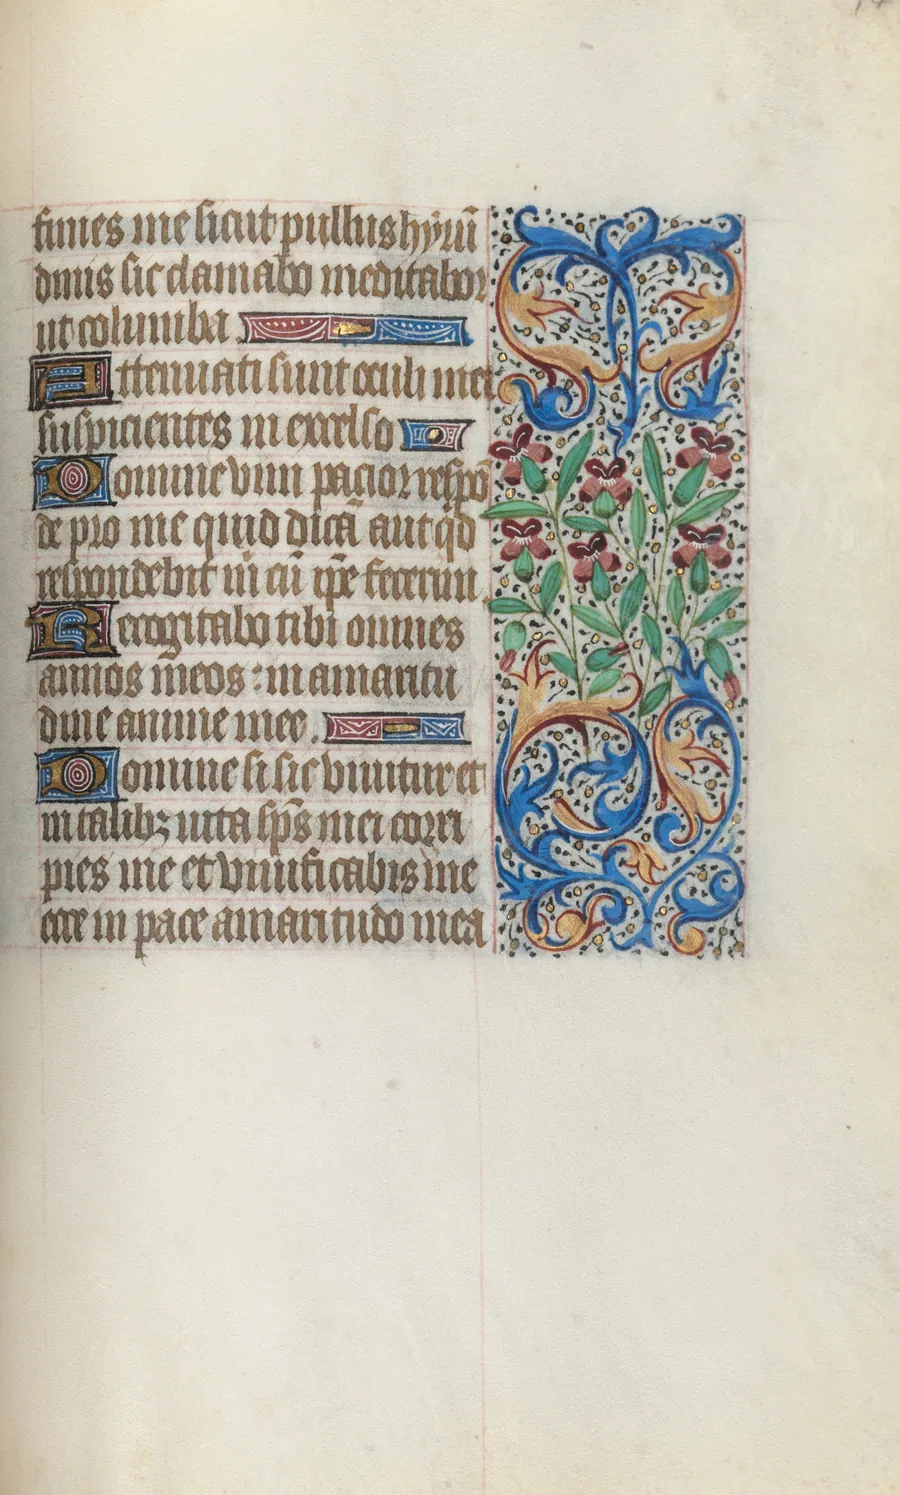 finies me sicut pullus hyrū
dinis sic clamabo meditabor
ut columba
Attenuati sunt oculi mei
suspicientes in excelso
Domine vim pacior respō
de pro me quid dicā aut qd
respondebit m̄ cū ip̄e fecerim
Recogitabo tibi omnes
annos meos : in amaritu
dine anime mee.
Domine si sic vivitur et
in talibz vita sp̄s mei corri
pies me et vivificabis me
ecce in pace amaritudo mea